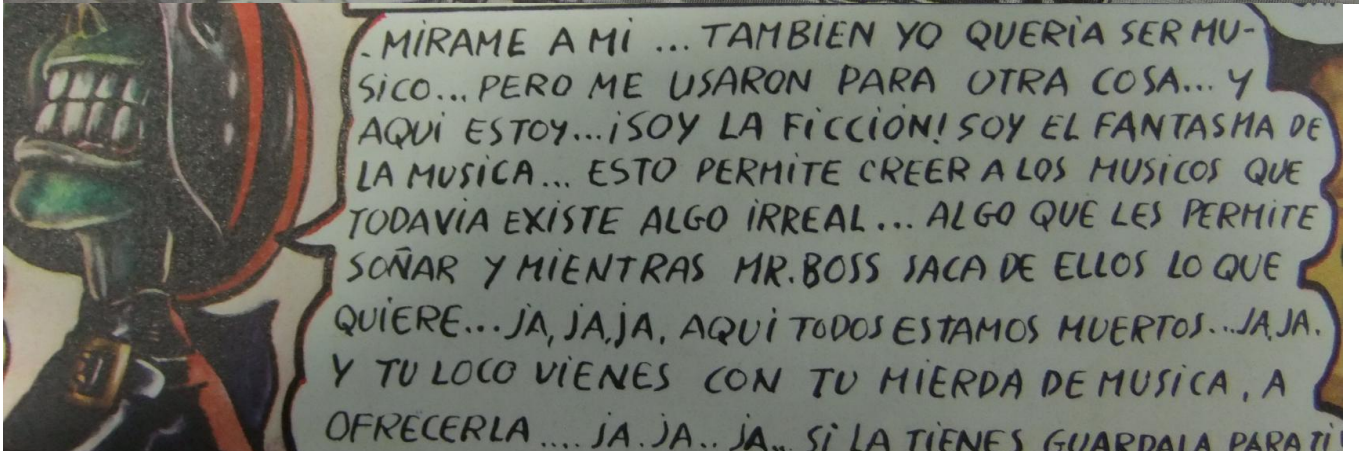 . MÍRAME A MÍ ... TAMBIEN YO QUERÌA SER MU-
SICO... PERO ME USARON PARA OTRA COSA... Y
AQUÍ ESTOY... ¡SOY LA FICCIÓN! SOY EL FANTASMA DE
LA MUSICA... ESTO PERMITE CREER A LOS MUSICOS QUE
TODAVIA EXISTE ALGO IRREAL... ALGO QUE LES PERMITE
SOÑAR Y MIENTRAS MR. BOSS SACA DE ELLOS LO QUE
QUIERE... JA, JA, JA, AQUÍ TODOS ESTAMOS MUERTOS... JA, JA.
Y TU LOCO VIENES CON TU MIERDA DE MUSICA, A
OFRECERLA.... JA. JA.. JA... SI LA TIENES GUARDALA PARA TI!